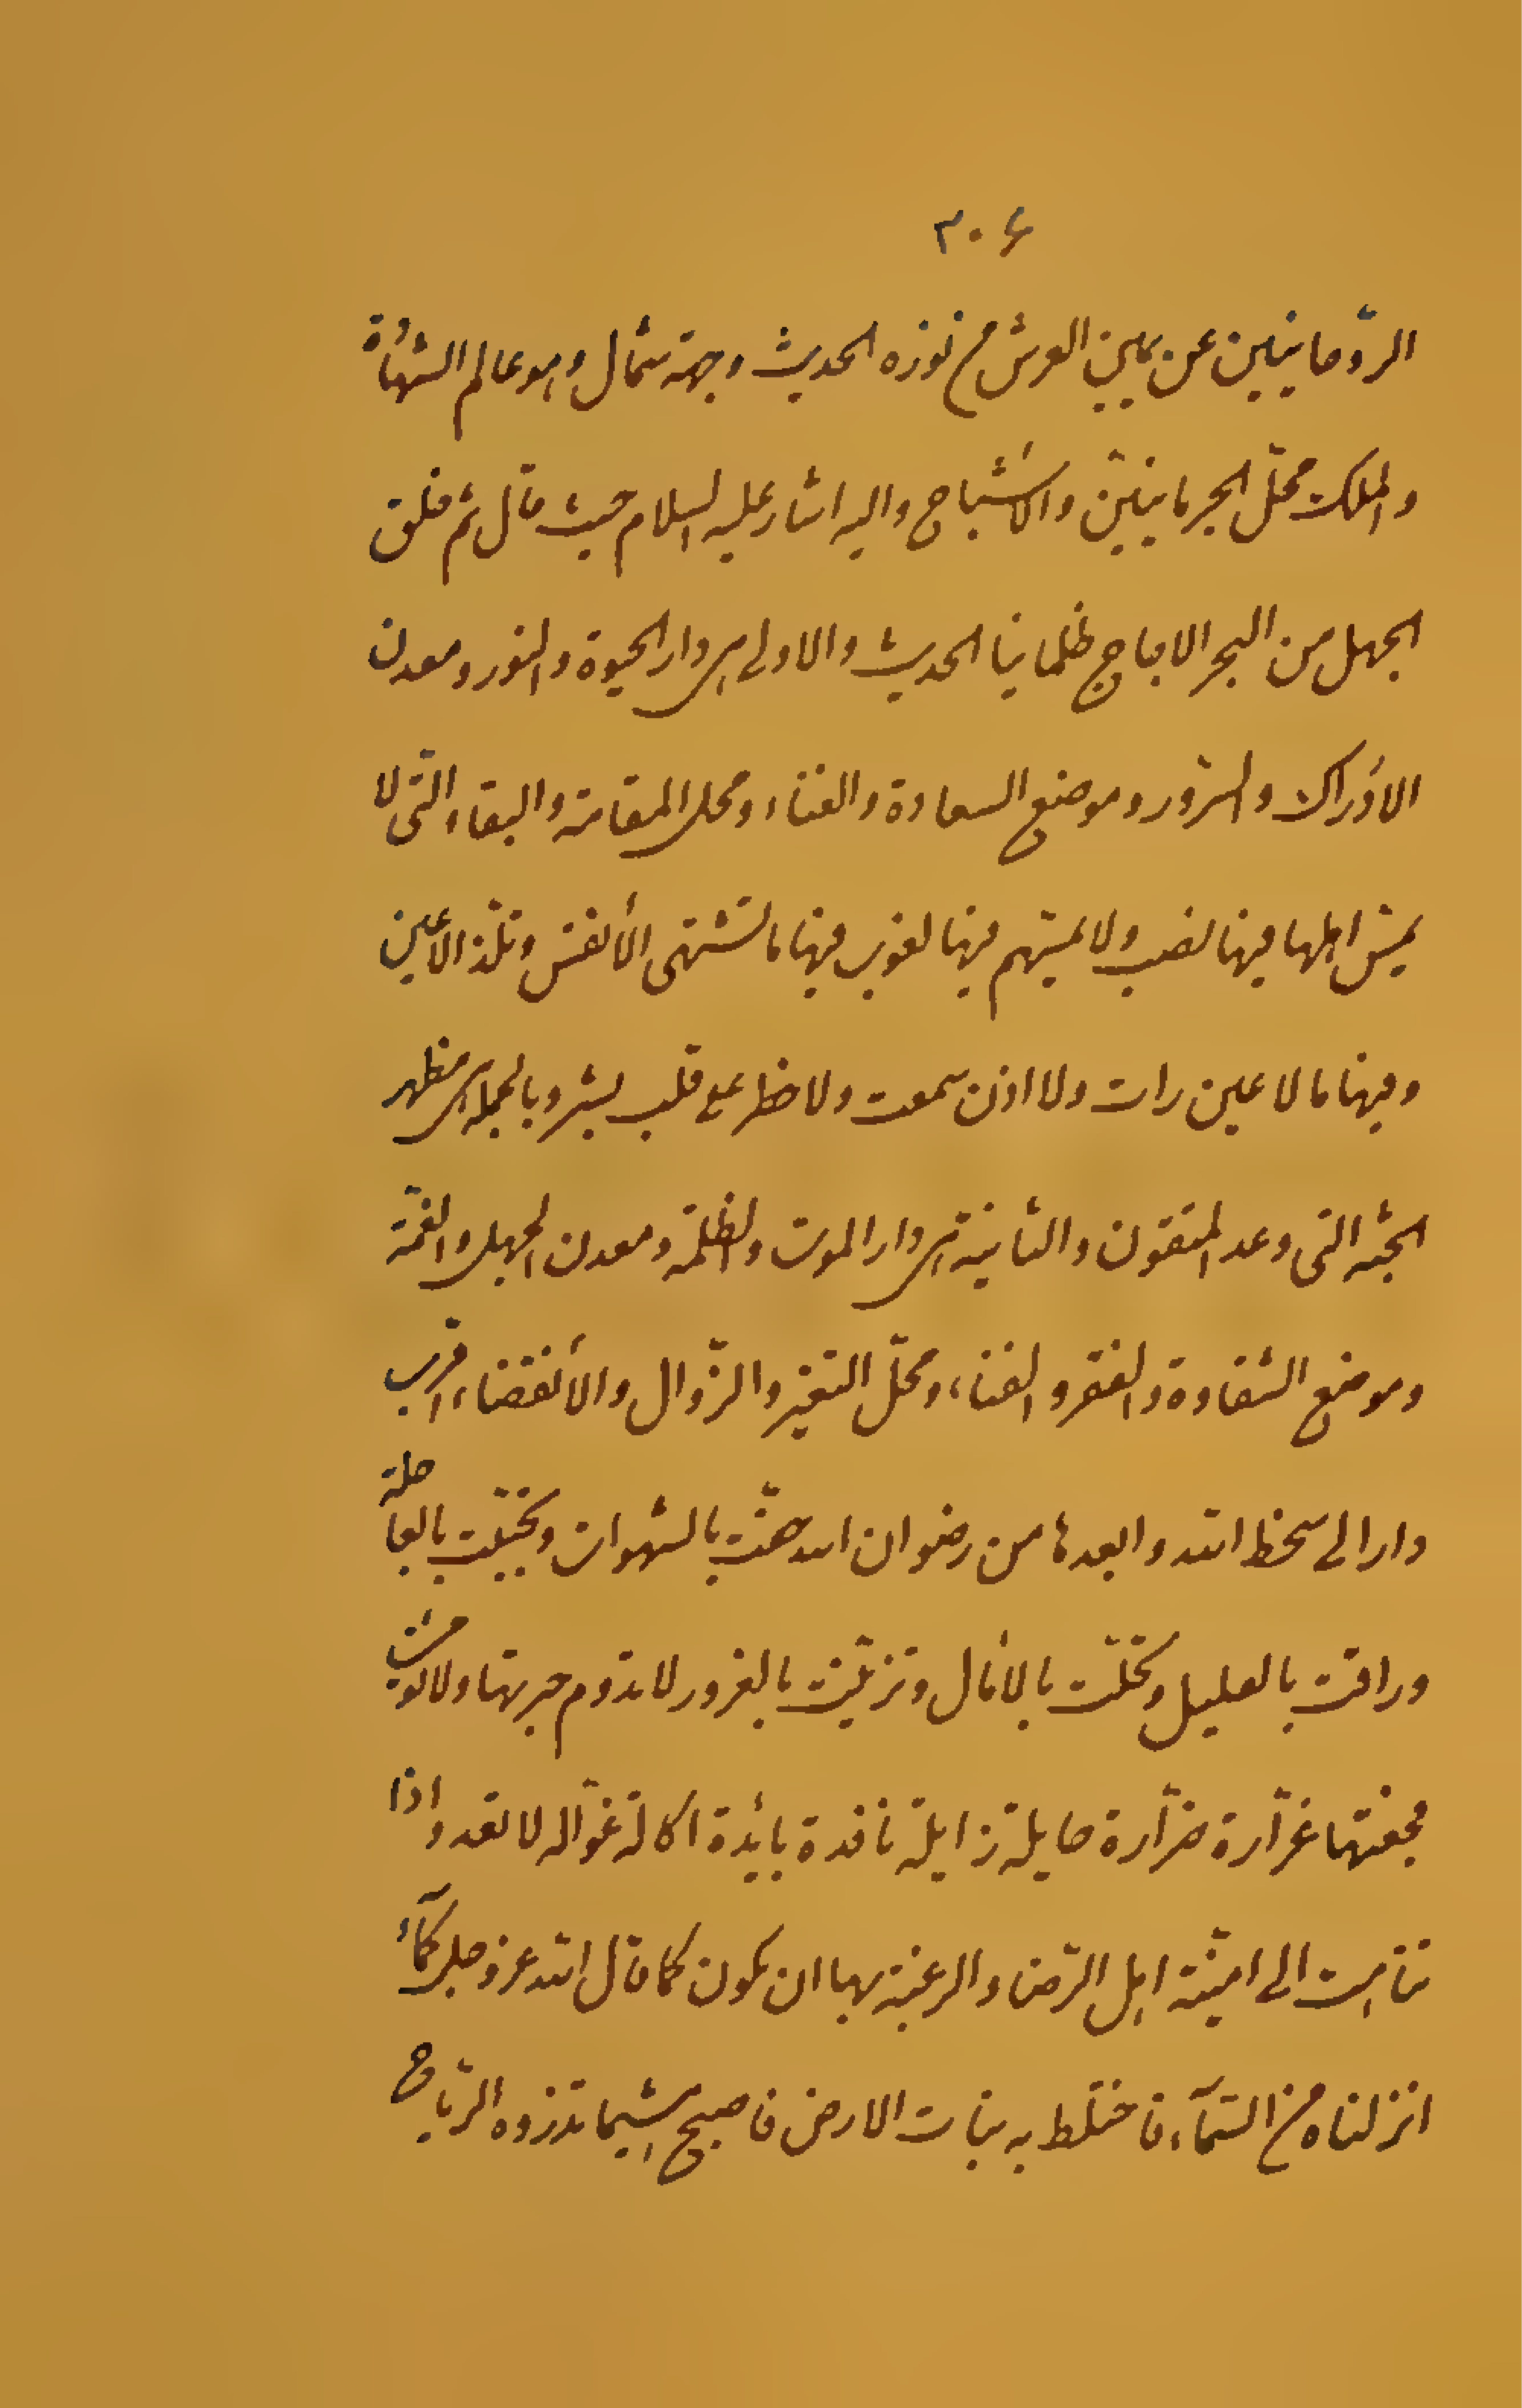 ٣٠۶
الرّوحانيين عن يمين العرش من نوره الحديث وجهة شمال وهو عالم الشهادة
والملك محلّ الجرمانيّين والأشباح واليه اشار عليه السلام حيث قال ثم خلق
الجهل من البحر الاجاج ظلمانيا الحديث والاولى هى دار الحيوة والنور ومعدن
الادراك والسّرور وموضع السعادة والغناء ومحل المقامة والبقاء الّتى لا
يمسّ اهلها فيها نصب ولا يمسّهم فيها لغوب فيها ما تشتهى الأنفس وتلذّ الاعين
وفيها ما لا عين رات ولا اذن سمعت ولا خطر على قلب بشر وبالجملة هى مظهر
الجنّة التى وعد المتقون والثانية هى دار الموت والظلمة ومعدن الجهل والغمّة
وموضع الشقاوة والفقر والفناء ومحلّ التغيّر والزّوال والأنقضاء اقرب
دار الى سخط الله وابعدها من رضوان الله حفّت بالشهوات وتحبّبت بالعاجلة
وراقت بالقليل وتحلّت بالأمال وتزيّنت بالغرور لا تدوم حبرتها ولا تؤمن
فجعتها غرّارة ضرّارة حايلة زايلة نافدة بائدة اكالة غوّالة لا تعدو اذا
تناهت الى امنيّة اهل الرّضا والرغبة بها ان تكون كما قال الله عز وجل كمآء
انزلناه من السّمآء فاختلط به نبات الارض فاصبح هشيما تذروه الرّياح